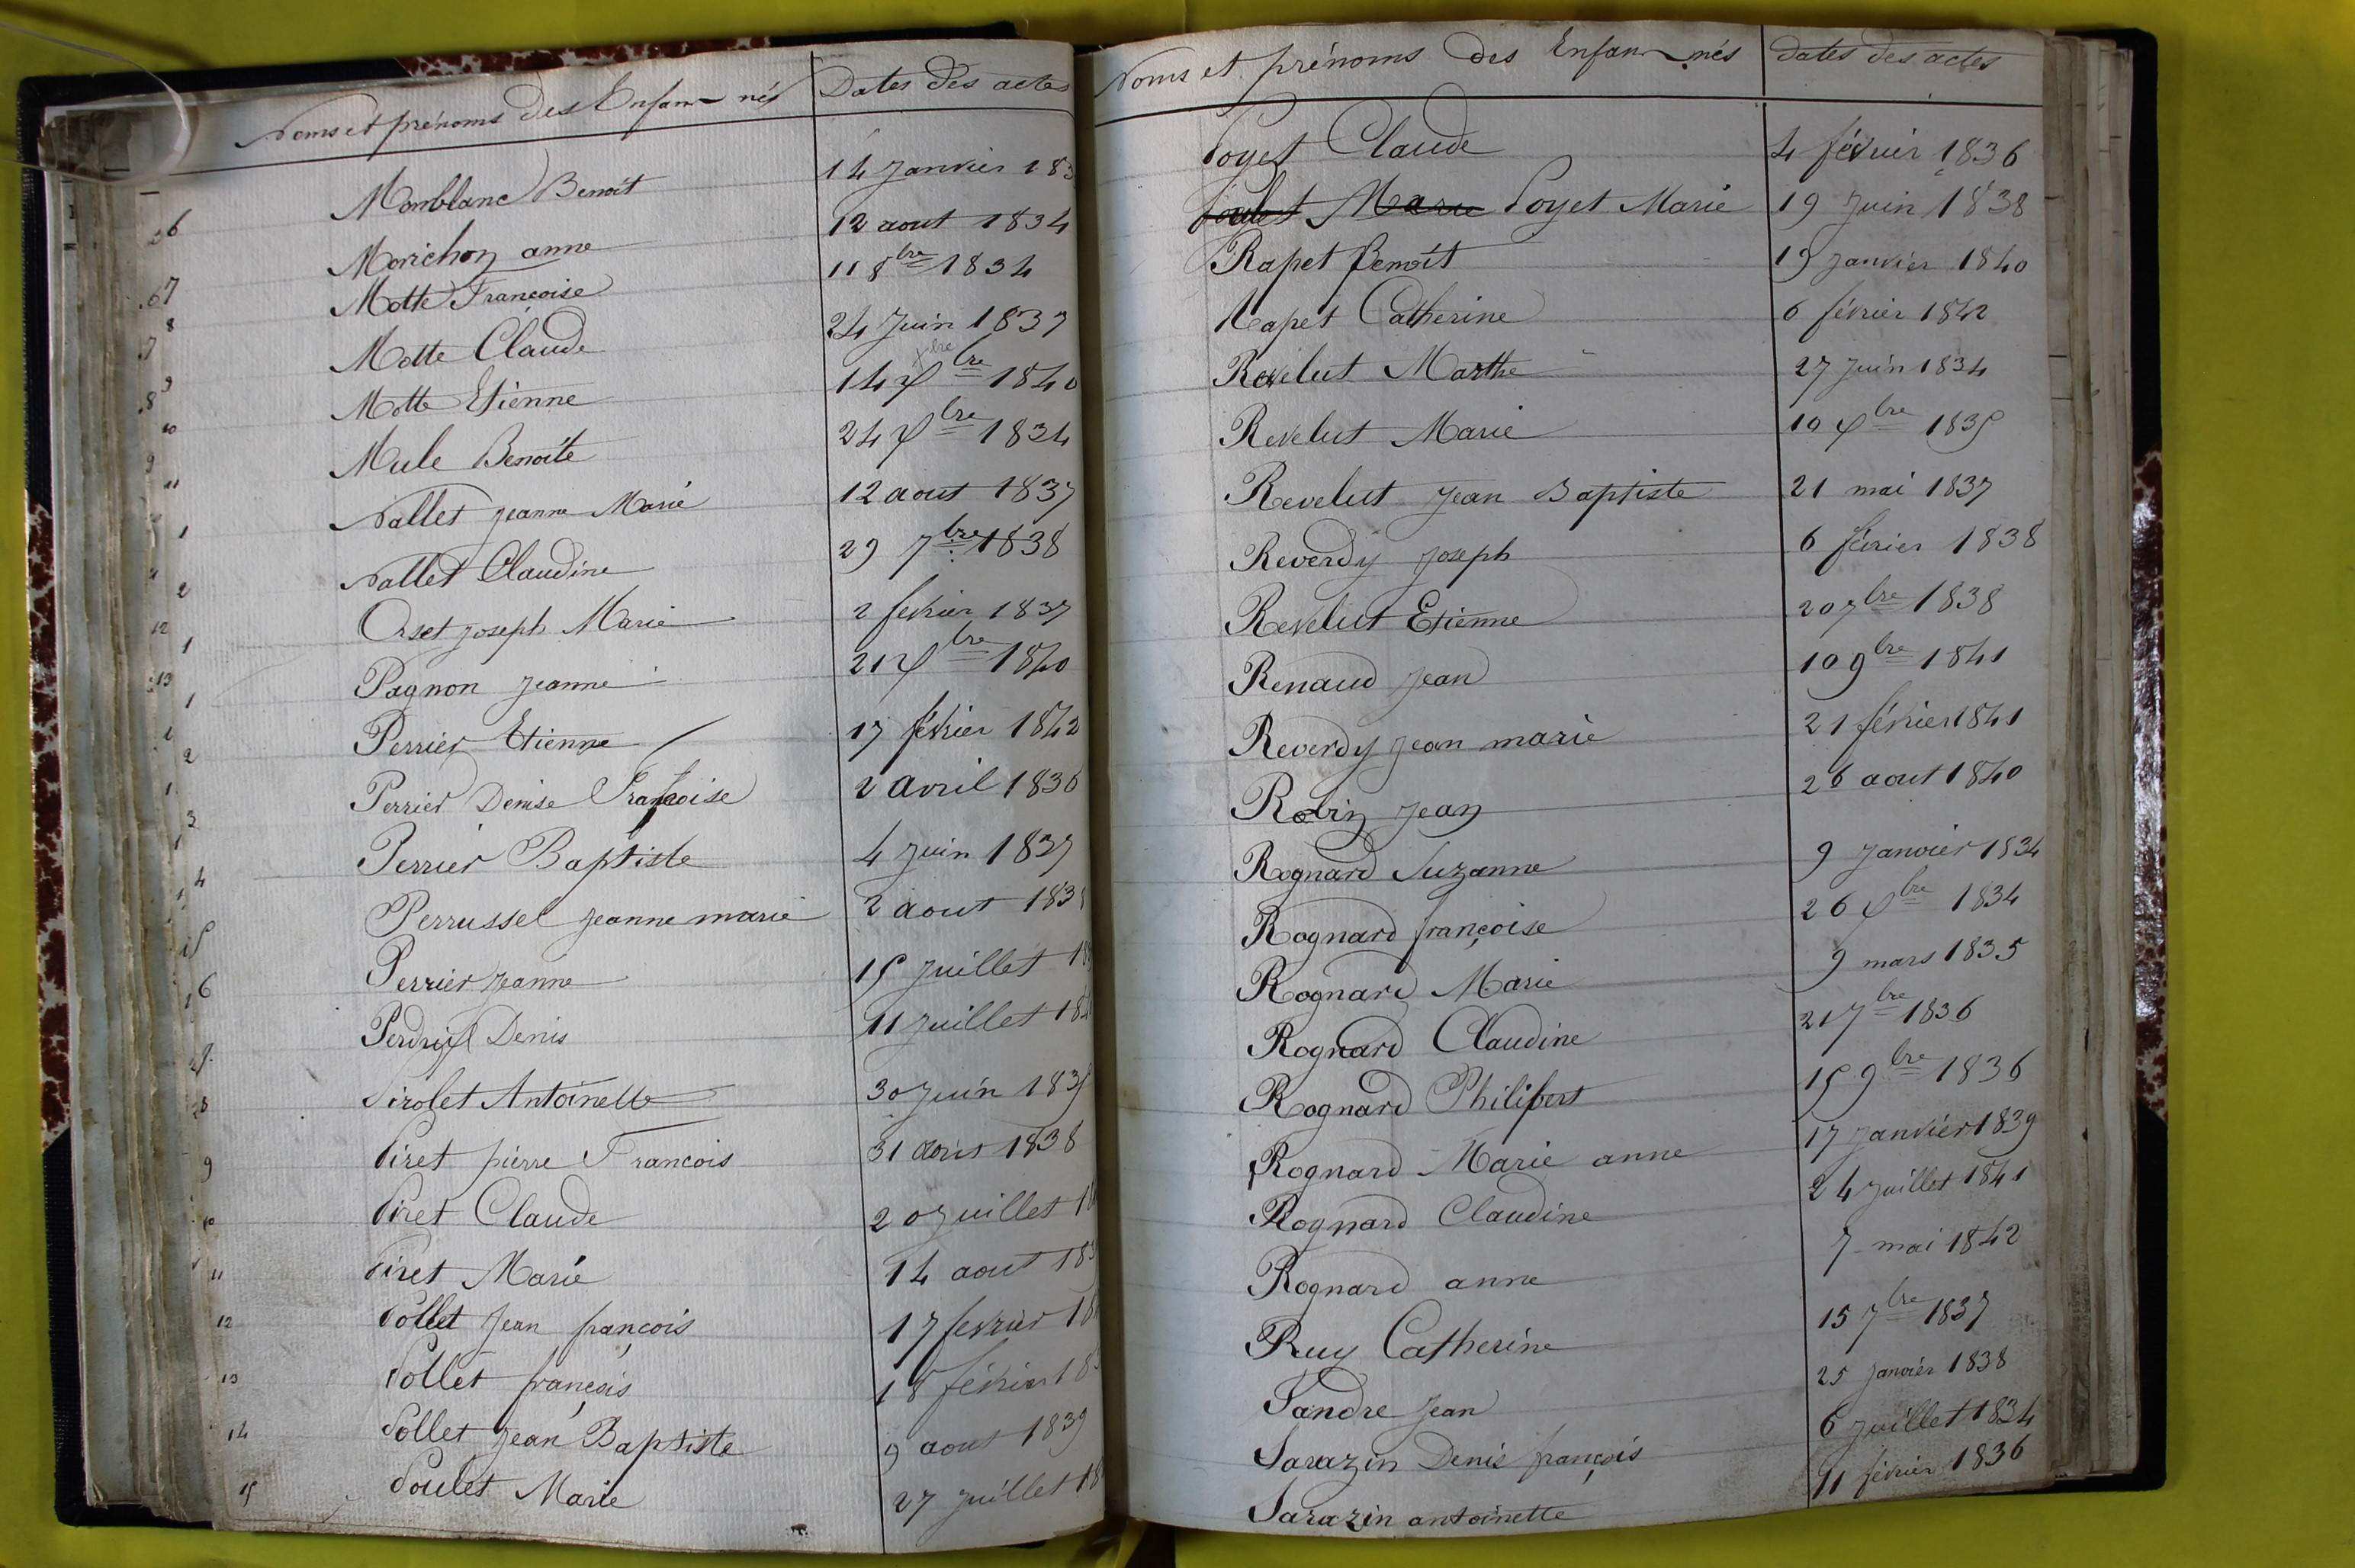 Noms et prénoms des Enfans nés Dates des actes
Monblanc Benoît 14 Janvier 183
Morichon anne 12 aout 1834
Motte Françoise 11 8bre 1834
Motte Claude 24 Juin 1837
Xbre
Motte Etienne 14 Xbre 1840
Mule Benoîte 24 Xbre 1834
Nallet Jeanne Marie 12 aout 1837
Nallet Claudine 29 7bre 1838
Orset Joseph Marie 2 février 1837
Pagnon Jeanne 21 Xbre 1840
Perrier Etienne 17 février 1842
Perrier Denise Françoise 2 avril 1836
Perrier Baptiste 4 Juin 1837
Perrussel Jeanne marie 2 aout 183
Perrier Jeanne 15 Juillet 18
Perdrix Denis 11 Juillet 18
Pirolet Antoinette 30 Juin 1835
Piret pierre Francois 31 aout 1838
Piret Claude 20 Juillet 18
Piret Marie 14 aout 183
Pollet Jean françois 17 février 18
Pollet françois 18 février 18
Pollet Jean Baptiste 9 aout 1839
Poulet Marie 27 Juillet 18
Noms et prénoms des Enfans nés dates des actes
Poyet Claude 4 février 1836
Poulet Marie Poyet Marie 19 Juin 1838
Rapet Benoît 19 Janvier 1840
Rapet Catherine 6 février 1842
Revelut Marthe 27 Juin 1834
Revelut Marie 10 Xbre 1835
Revelut Jean Baptiste 21 mai 1837
Reverdy Joseph 6 février 1838
Revelut Etienne 20 7bre 1838
Renaud Jean 10 9bre 1841
Reverdy Jean marie 21 février 1841
Robin Jean 26 aout 1840
Rognard Suzanne 9 Janvier 1834
Rognard françoise 26 Xbre 1834
Rognard Marie 9 mars 1835
Rognard Claudine 21 7bre 1836
Rognard Philibert 15 9bre 1836
Rognard Marie anne 17 Janvier 1839
Rognard Claudine 24 Juillet 1841
Rognard anne 7 mai 1842
Ruy Catherine 15 7bre 1837
Sandre Jean 25 Janvier 1838
Sarazin Denis françois 6 Juillet 1834
Sarazin antoinette 11 février 1836